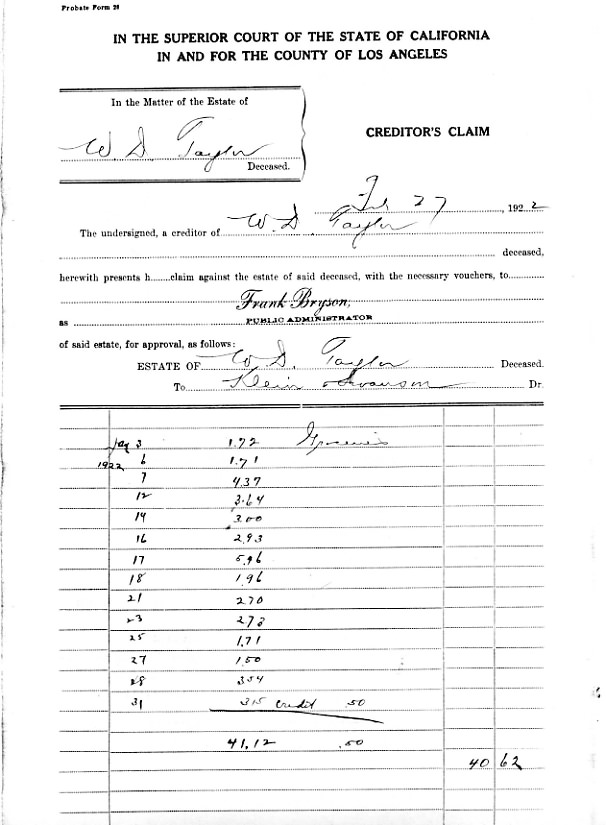 Probate Form 28
IN THE SUPERIOR COURT OF THE STATE OF CALIFORNIA
IN AND FOR THE COUNTY OF LOS ANGELES
In the Matter of the Estate of
W. D. Taylor
Deceased.
CREDITOR'S CLAIM
Feb 27, 1922
The undersigned, a creditor of W. D. Taylor
deceased,
herewith presents h......claim against the estate of said deceased, with the necessary vouchers, to
Frank Bryson,
as PUBLIC ADMINISTRATOR
of said estate, for approval, as follows:
ESTATE OF W. D. Taylor Deceased.
To Klein & Swanson Dr.
Jan 3 1.72 Groceries
1922 6 1.71
7 4.37
12 3.64
14 3.00
16 2.93
17 5.96
18 1.96
21 2.70
23 2.73
25 1.71
27 1.50
28 3.54
31 3.15 credit .50
41.12 .50
40 62